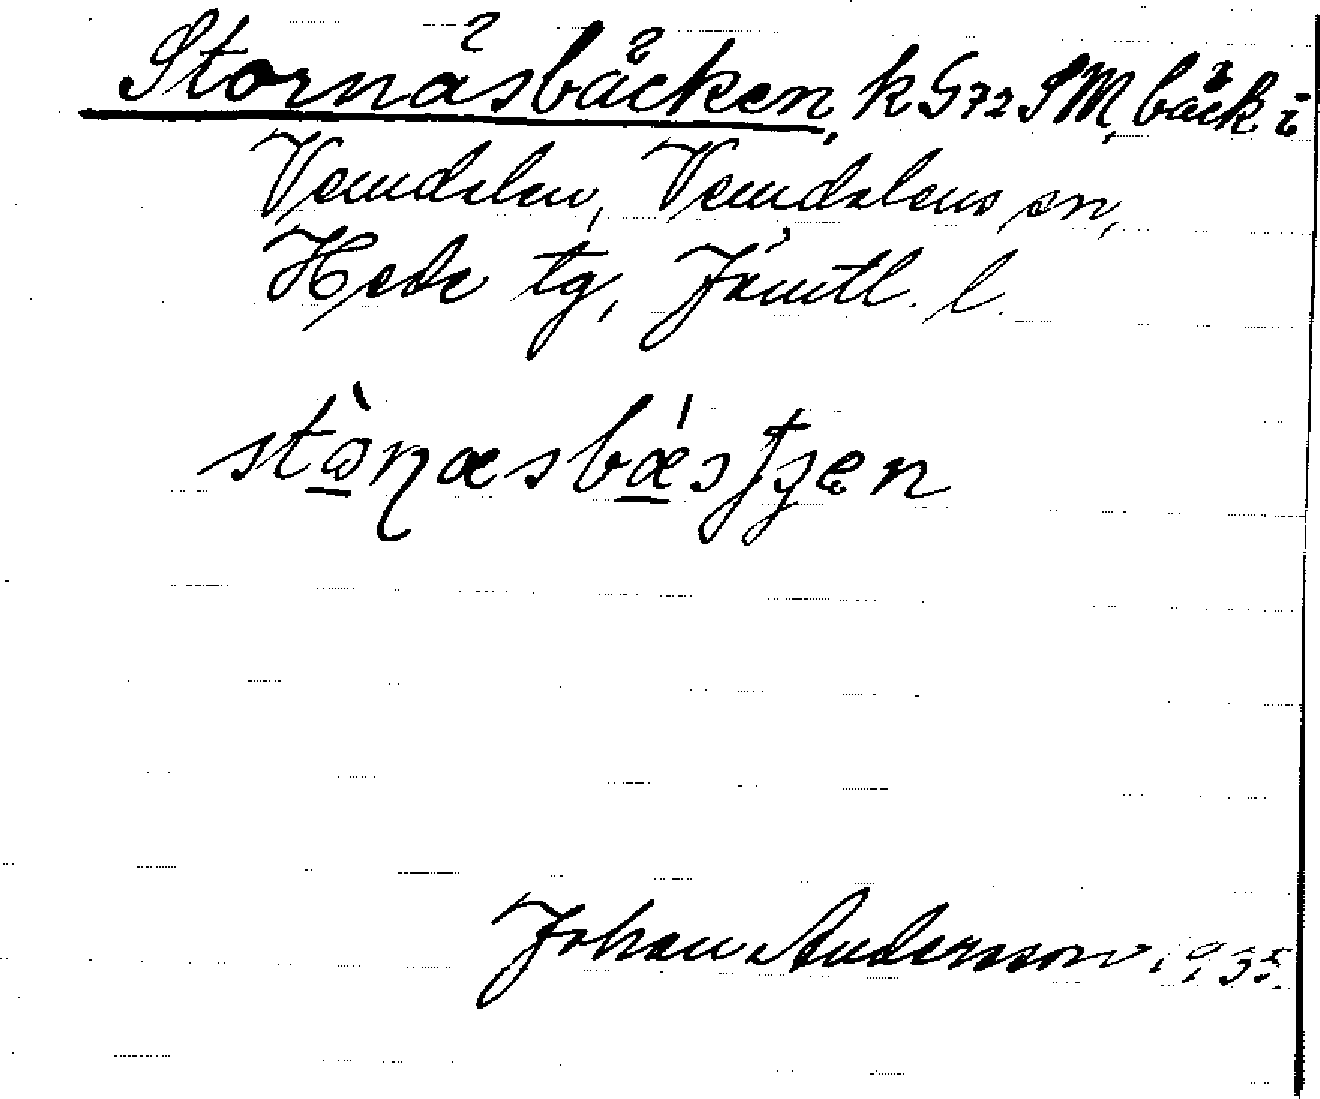 Stornäsbäcken, k G72 SM, bäck i
Vemdalen, Vemdalens sn,
Hede tg, Jämtl. l.
Johan Anderson 1935.